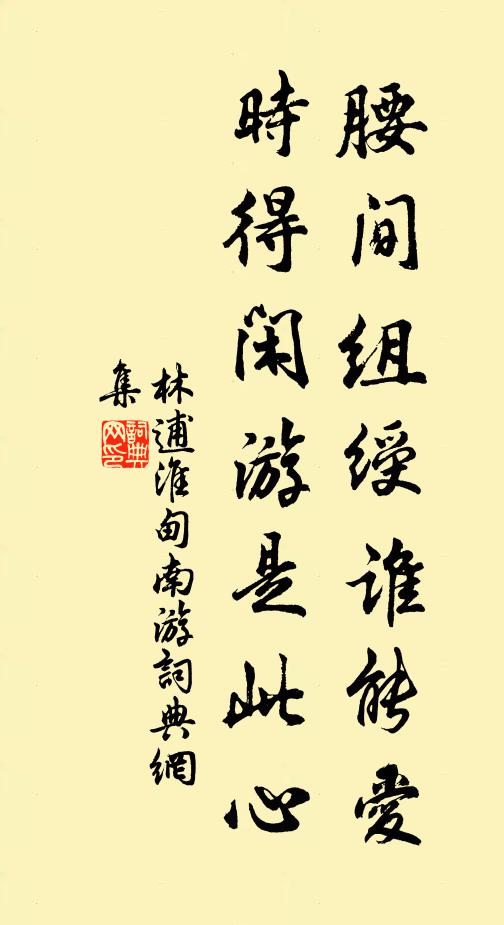 腰间组綬谁能愛
時得闲游是此心
林逋淮甸南游詞典網
集
詞典
网印